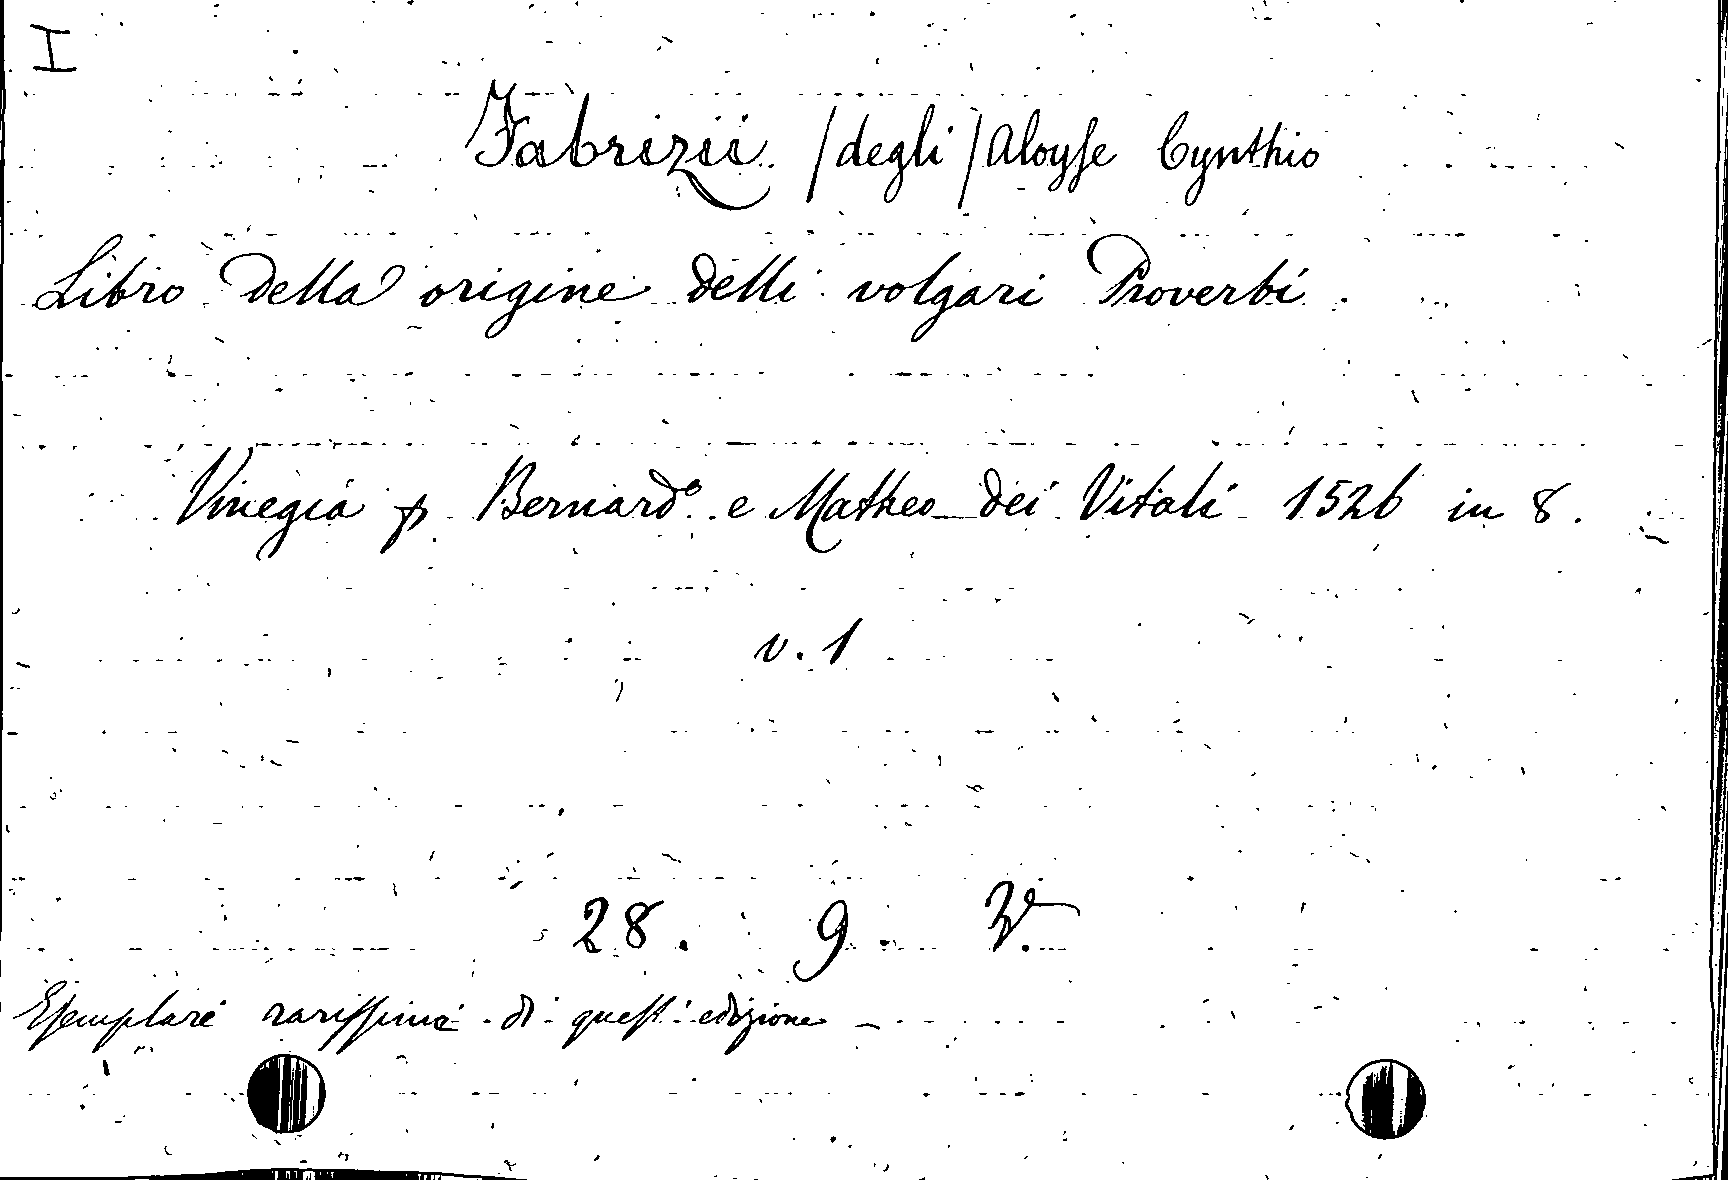 I
Fabrizii /degli/ Aloyse Cynthio
Libro della origine delli volgari Proverbi.
Vinegia p Bernardo e Mattheo dei Vitali 1526 in 8.
v. 1
28. 9
Esemplare rarissime di quest' edizione